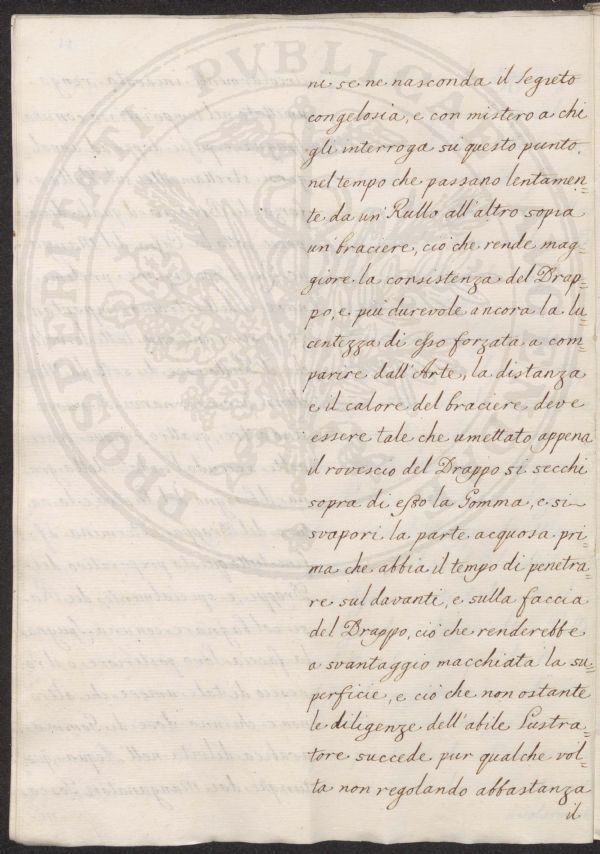 ni se ne nasconda il Segreto
con gelosia, e con mistero a chi
gli interroga su questo punto.
nel tempo che passano lentamen=
te da un' Rullo all'altro sopra
un' braciere, ciò che rende mag=
giore la consistenza del Drap=
po, e piu' durevole ancora la lu=
centezza di esso forzata a com=
parire dall'Arte, la distanza
e il calore del braciere deve
essere tale che umettato appena
il rovescio del Drappo si secchi
sopra di esso la Gomma, e si
svapori la parte acquosa pri=
ma che abbia il tempo di penetra=
re sul davanti, e sulla faccia
del Drappo, ciò che renderebbe
a svantaggio macchiata la su=
perficie, e ciò che non ostante
le diligenze dell'abile Lustra=
tore succede pur qualche vol=
ta non regolando abbastanza
il
PROSPERITATI PVBLICAE